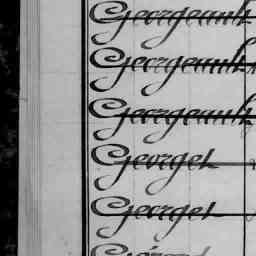 Georgeault
Georgeault
Georgeault
Georget
Georget